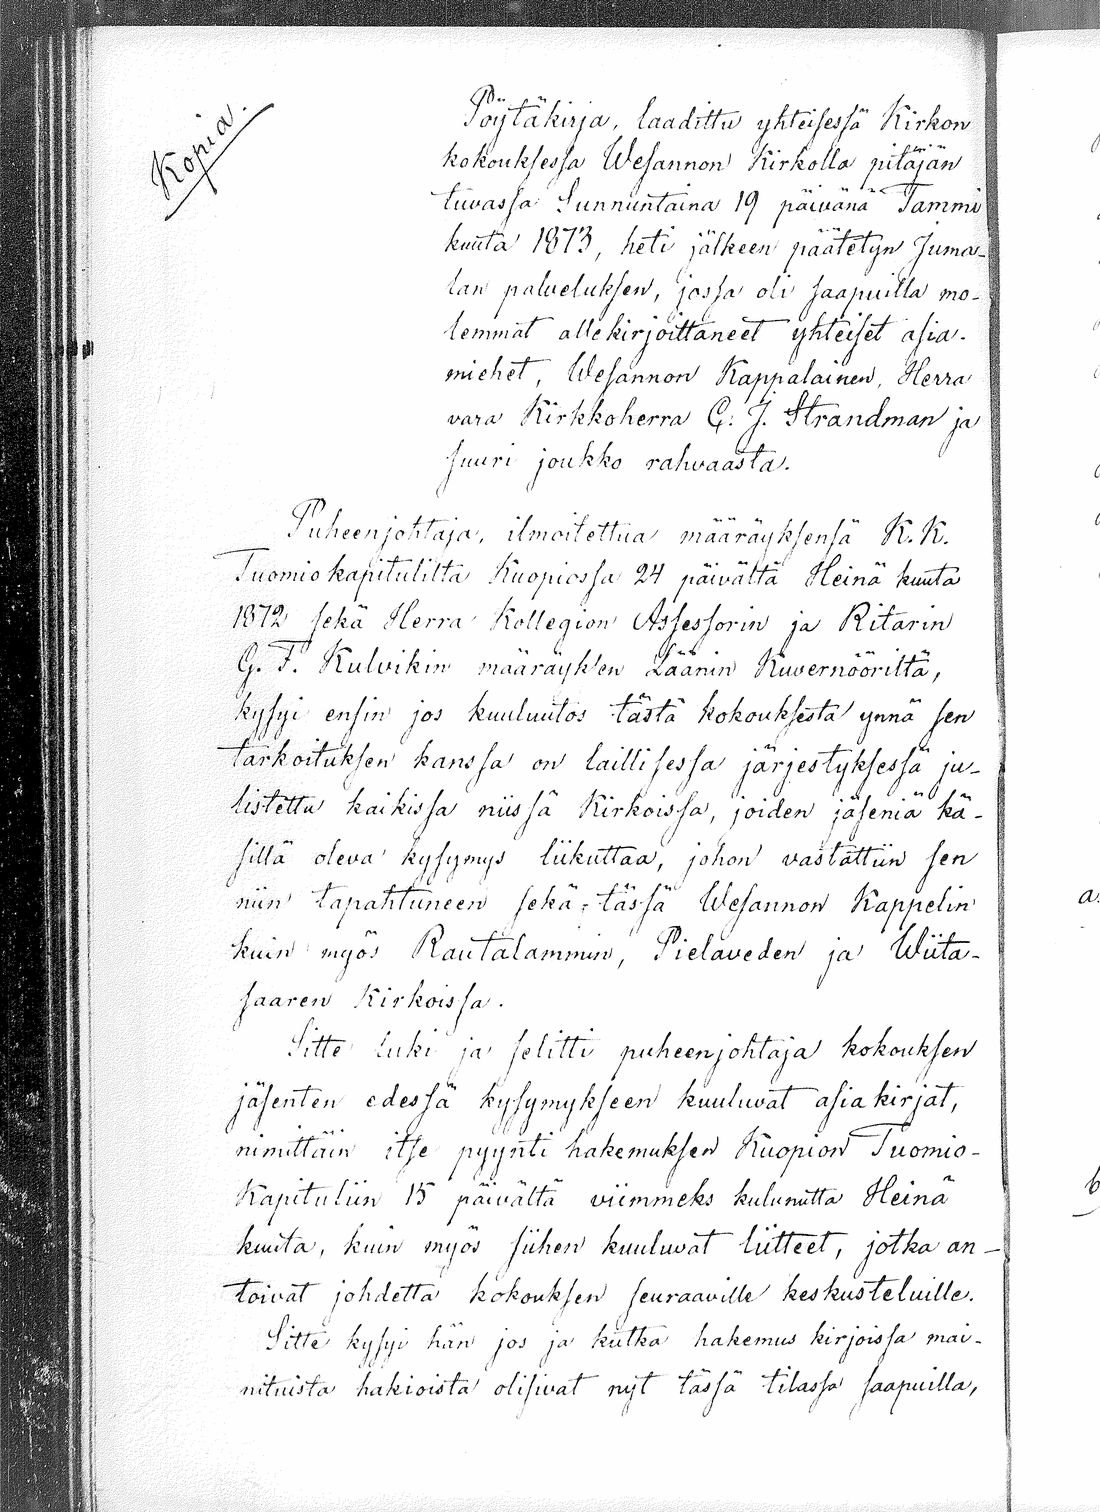 Kopia.
Pöytäkirja, laadittu yhteisessä Kirkon
kokouksessa Wesannon Kirkolla pitäjän
tuvassa Sunnuntaina 19 päivänä Tammi
kuuta 1873, heti jälkeen päätetyn Juma-
lan palveluksen, jossa oli saapuilla mo-
lemmat allekirjoittaneet yhteiset asia-
miehet, Wesannon Kappalainen, Herra
vara Kirkkoherra C. J. Strandman ja
suuri joukko rahvaasta.
Puheenjohtaja, ilmoitettua määräyksensä K. K.
Tuomiokapitulilta Kuopiossa 24 päivältä Heinä kuuta
1872 sekä Herra Kollegion Assessorin ja Ritarin
G. F. Kulvikin määräyksen Läänin Kuvernööriltä,
kysyi ensin jos kuuluutos tästä kokouksesta ynnä sen
tarkoituksen kanssa on laillisessa järjestyksessä ju-
listettu kaikissa niissä Kirkoissa, joiden jäseniä kä-
sillä oleva kysymys liikuttaa, johon vastattiin sen
niin tapahtuneen sekä tässä Wesannon Kappelin
kuin myös Rautalammin, Pielaveden ja Wiita-
saaren Kirkoissa.
Sitte luki ja selitti puheenjohtaja kokouksen
jäsenten edessä kysymykseen kuuluvat asiakirjat,
nimittäin itse pyynti hakemuksen Kuopion Tuomio-
Kapituliin 15 päivältä viimmeks kulunutta Heinä
kuuta, kuin myös siihen kuuluvat liitteet, jotka an-
toivat johdetta kokouksen seuraaville keskusteluille.
Sitte kysyi hän jos ja kutka hakemus kirjoissa mai-
nituista hakioista olisivat nyt tässä tilassa saapuilla,
a.
b